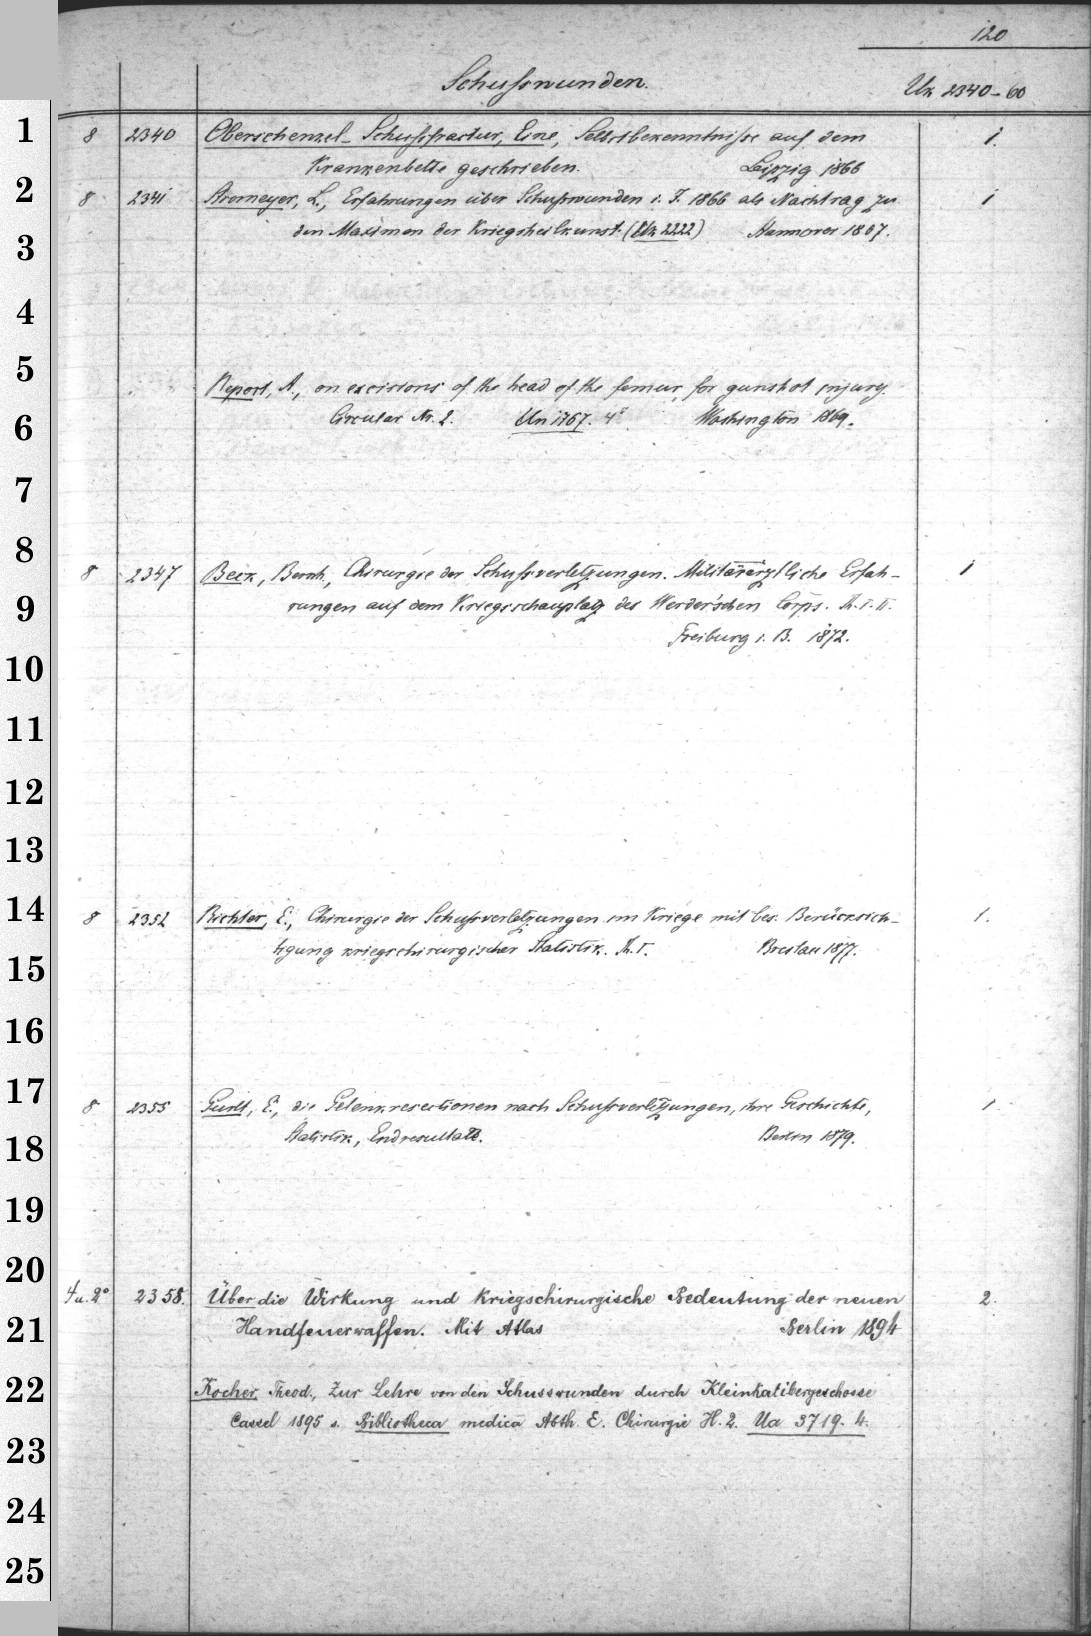 120
Schußwunden.
Uk 2340-60
1
8 2340 Oberschenkel-Schußfractur, Eine, Selbstbekenntniße auf dem 1.
Krankenbette geschrieben. Leipzig 1866
2
8 2341 Stromeyer, L., Erfahrungen über Schußwunden i. J. 1866 als Nachtrag zu 1
den Maximen der Kriegsheilkunst. (Uk 2222) Hannover 1867.
3
4
5
Report, A., on excisions of the head of the femur for gunshot injury.
Circular Nr. 2. Un 1767. 4° Washington 1869.
6
7
8
8 2347 Beck, Bernh., Chirurgie der Schußverletzungen. Militärärztliche Erfah- 1
9
rungen auf dem Kriegsschauplatz des Werder'schen Corps. Th. I. II.
Freiburg i. B. 1872.
10
11
12
13
14
8 2352 Richter, E., Chirurgie der Schußverletzungen im Kriege mit bes. Berücksich- 1.
tigung kriegschirurgischer Statistik. Th. I. Breslau 1877.
15
16
17
8 2355 Gurlt, E., die Gelenkresectionen nach Schußverletzungen, ihre Geschichte, 1.
Statistik, Endresultate. Berlin 1879.
18
19
20
4 u. 2° 2358. Über die Wirkung und kriegschirurgische Bedeutung der neuen 2.
21
Handfeuerwaffen. Mit Atlas Berlin 1894
22
Kocher, Theod., Zur Lehre von den Schusswunden durch Kleinkalibergeschosse
Cassel 1895 s. Bibliotheca medica Abth. E. Chirurgie H. 2. Ua 3719. 4.
23
24
25